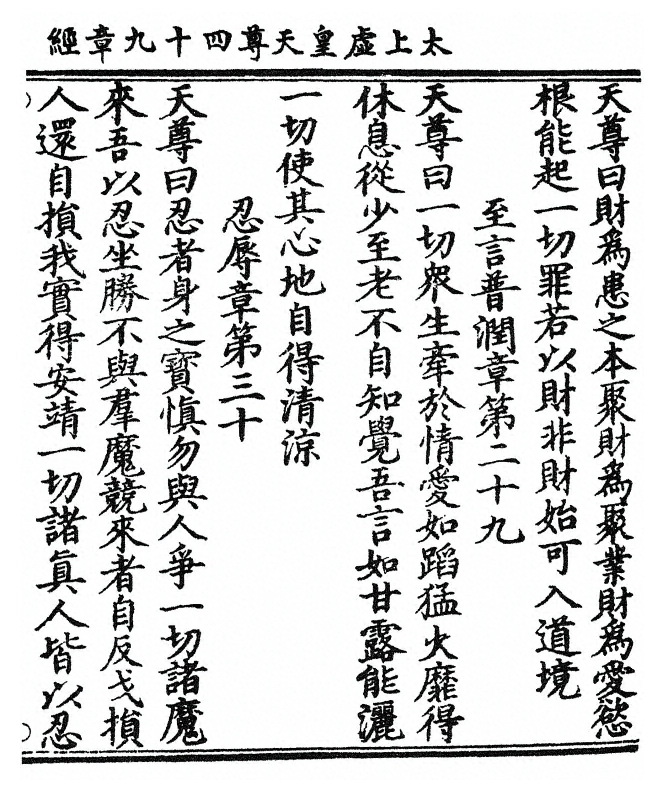 太上虛皇天尊四十九章經
天尊曰財爲患之本聚財爲聚業財爲愛慾
根能起一切罪若以財非財始可入道境
至言普潤章第二十九
天尊曰一切眾生牽於情愛如蹈猛火靡得
休息從少至老不自知覺吾言如甘露能灑
一切使其心地自得清涼
忍辱章第三十
天尊曰忍者身之寶慎勿與人爭一切諸魔
來吾以忍坐勝不與羣魔競來者自反戈損
人還自損我實得安靖一切諸真人皆以忍